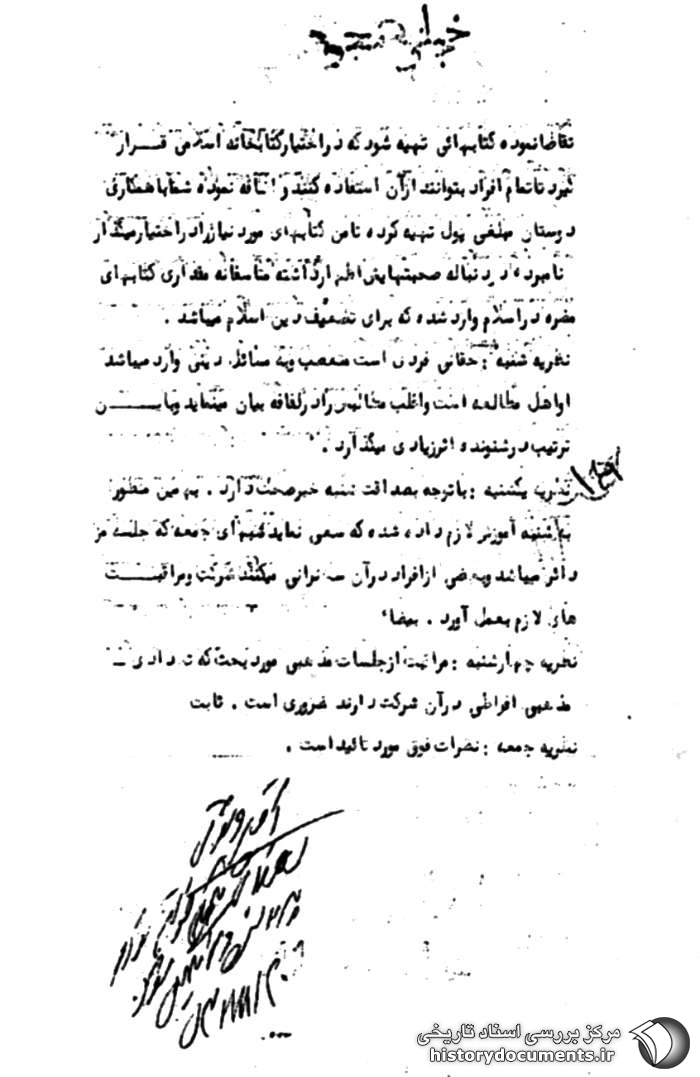 خیلی محرمانه
تقاضا نموده کتابهائی تهیه شود که در اختیار کتابخانه اسلامی قـــرار
گیرد تا تمام افراد بتوانند از آن استفاده کنند و اضافه نموده شما با همکاری
دوستان مبلغی پول تهیه کرده تا من کتابهای مورد نیاز را در اختیار میگذار
نامبرده در دنباله صحبتهایش اظهار داشته متأسفانه مقداری کتابهای
مضره در اسلام وارد شده که برای تضعیف دین اسلام میباشد .
نظریه شنبه : حقانی فردی است متعصب وبه مسائل دینی وارد میباشد
او اهل مطالعه است و اغلب مطالبش را در لفافه بیان مینماید وباین
ترتیب در شنونده اثر زیادی میگذارد .
نظریه یکشنبه : با توجه بصداقت شنبه خبر صحت دارد . بهمین منظور
به شنبه آموزش لازم داده شده که سعی نماید شبهای جمعه که جلسه
دائر میباشد وبعضی از افراد در آن سخنرانی میکنند شرکت ومراقبت
های لازم بعمل آورد . بیضاء
نظریه چهارشنبه : مراقبت از جلسات مذهبی مورد بحث که تعدادی
مذهبی افراطی در آن شرکت دارند ضروری است . ثابت
نظریه جمعه : نظرات فوق مورد تائید است .
مرکز بررسی اسناد تاریخی
historydocuments.ir